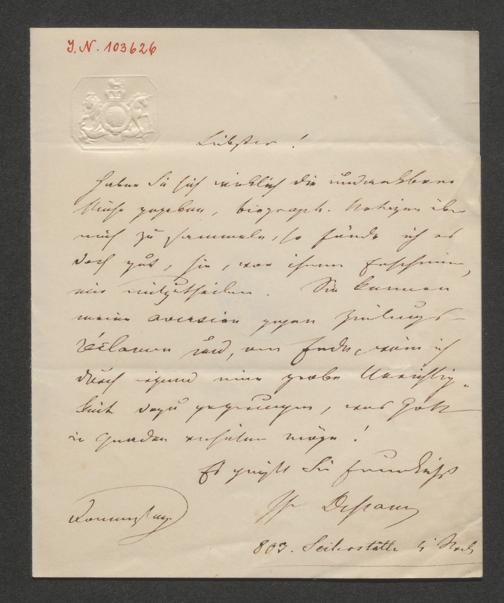 I. N. 103626
Liebster!
Haben Sie sich wirklich die undankbare
Mühe gegeben, biograph. Notizen über
mich zu sammeln, so fände ich es
doch gut, sie, vor ihrem Erscheinen,
mir mitzutheilen. Sie kennen
meine Aversion gegen Zeitungs-
Réclamen und, am Ende, wäre ich
durch irgend eine grobe Unrichtig-
keit dazu gezwungen, was Gott
in Gnaden verhüten möge!
Es grüßt Sie freundlichst
Ihr Dessoff
Donnerstag
803. Seilerstätte 4 Stock